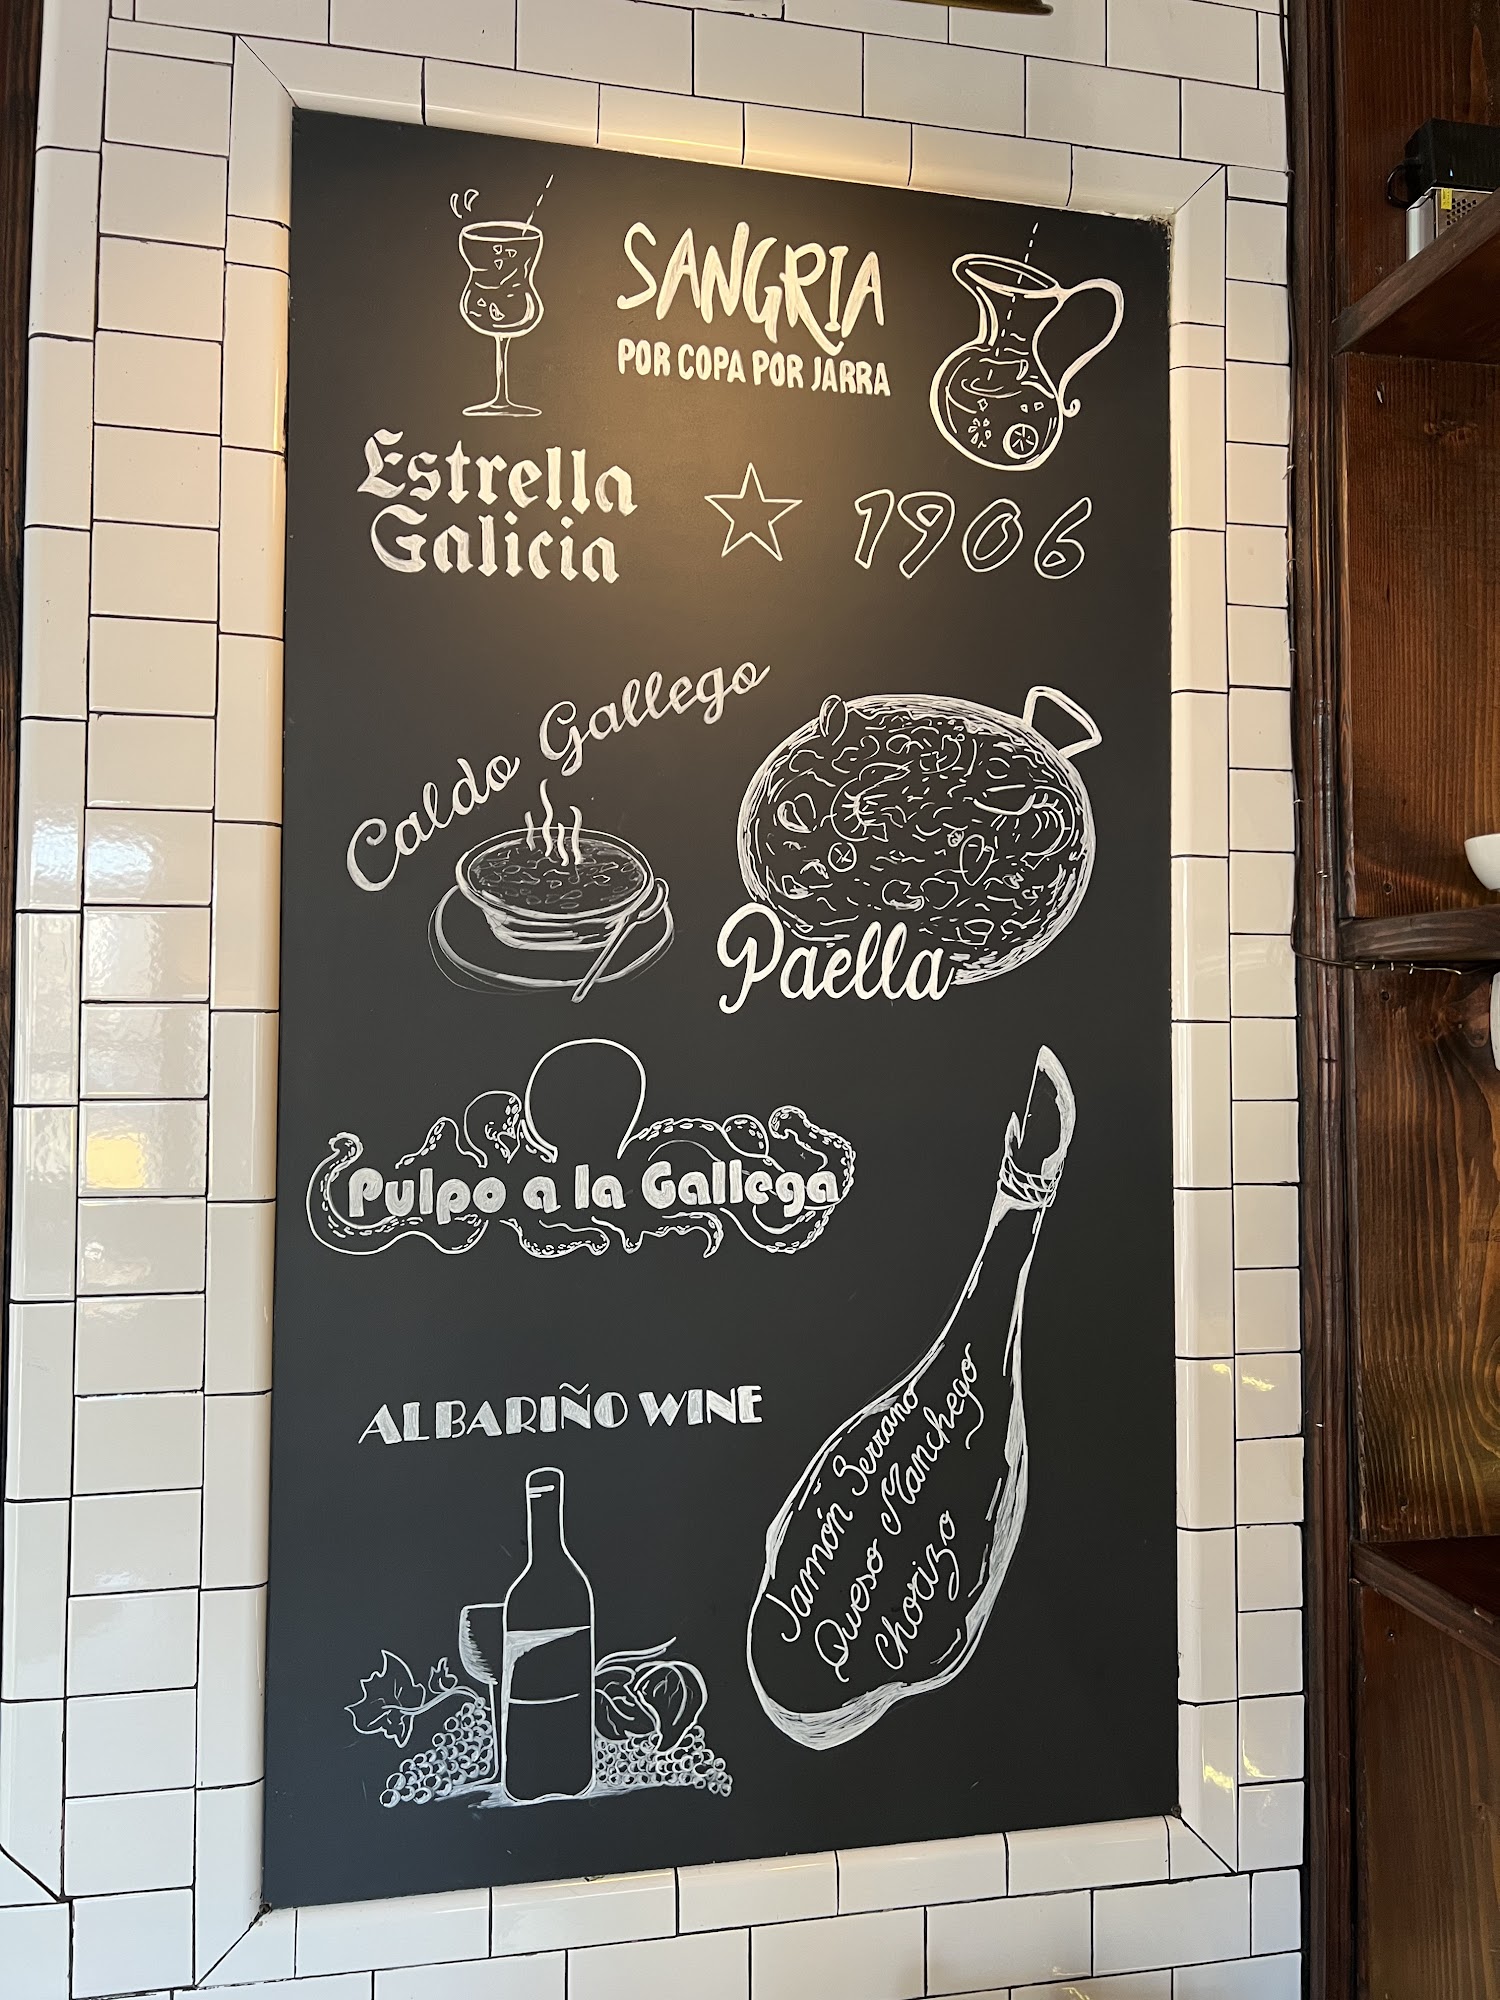 SANGRIA
POR COPA POR JARRA
Estrella
Galicia
1906
Caldo Gallego
Paella
Pulpo a la Gallega
ALBARIÑO WINE
Jamón Serrano
Queso Manchego
Chorizo